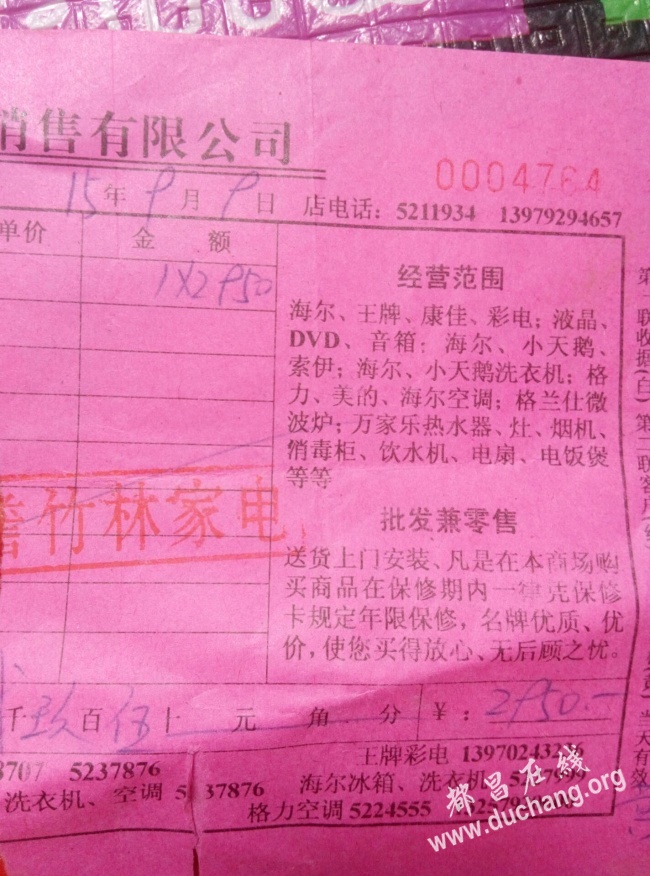 销售有限公司
0004764
15年9月9日 店电话: 5211934 13979294657
单价 金额
1X2950
经营范围
海尔、王牌、康佳、彩电; 液晶、
DVD、音箱; 海尔、小天鹅、
索伊; 海尔、小天鹅洗衣机; 格
力、美的、海尔空调; 格兰仕微
波炉; 万家乐热水器、灶、烟机、
消毒柜、饮水机、电扇、电饭煲
等等
竹林家电
批发兼零售
送货上门安装、凡是在本商场购
买商品在保修期内一律凭保修
卡规定年限保修, 名牌优质、优
价, 使您买得放心、无后顾之忧。
千玖百伍十 元 角 分 ¥: 2950.-
王牌彩电
8707 5237876
海尔冰箱、洗衣机、
洗衣机、空调
格力空调 5224555
第一联收据(白) 第二联客户
当天有效
都昌在线
www.duchang.org